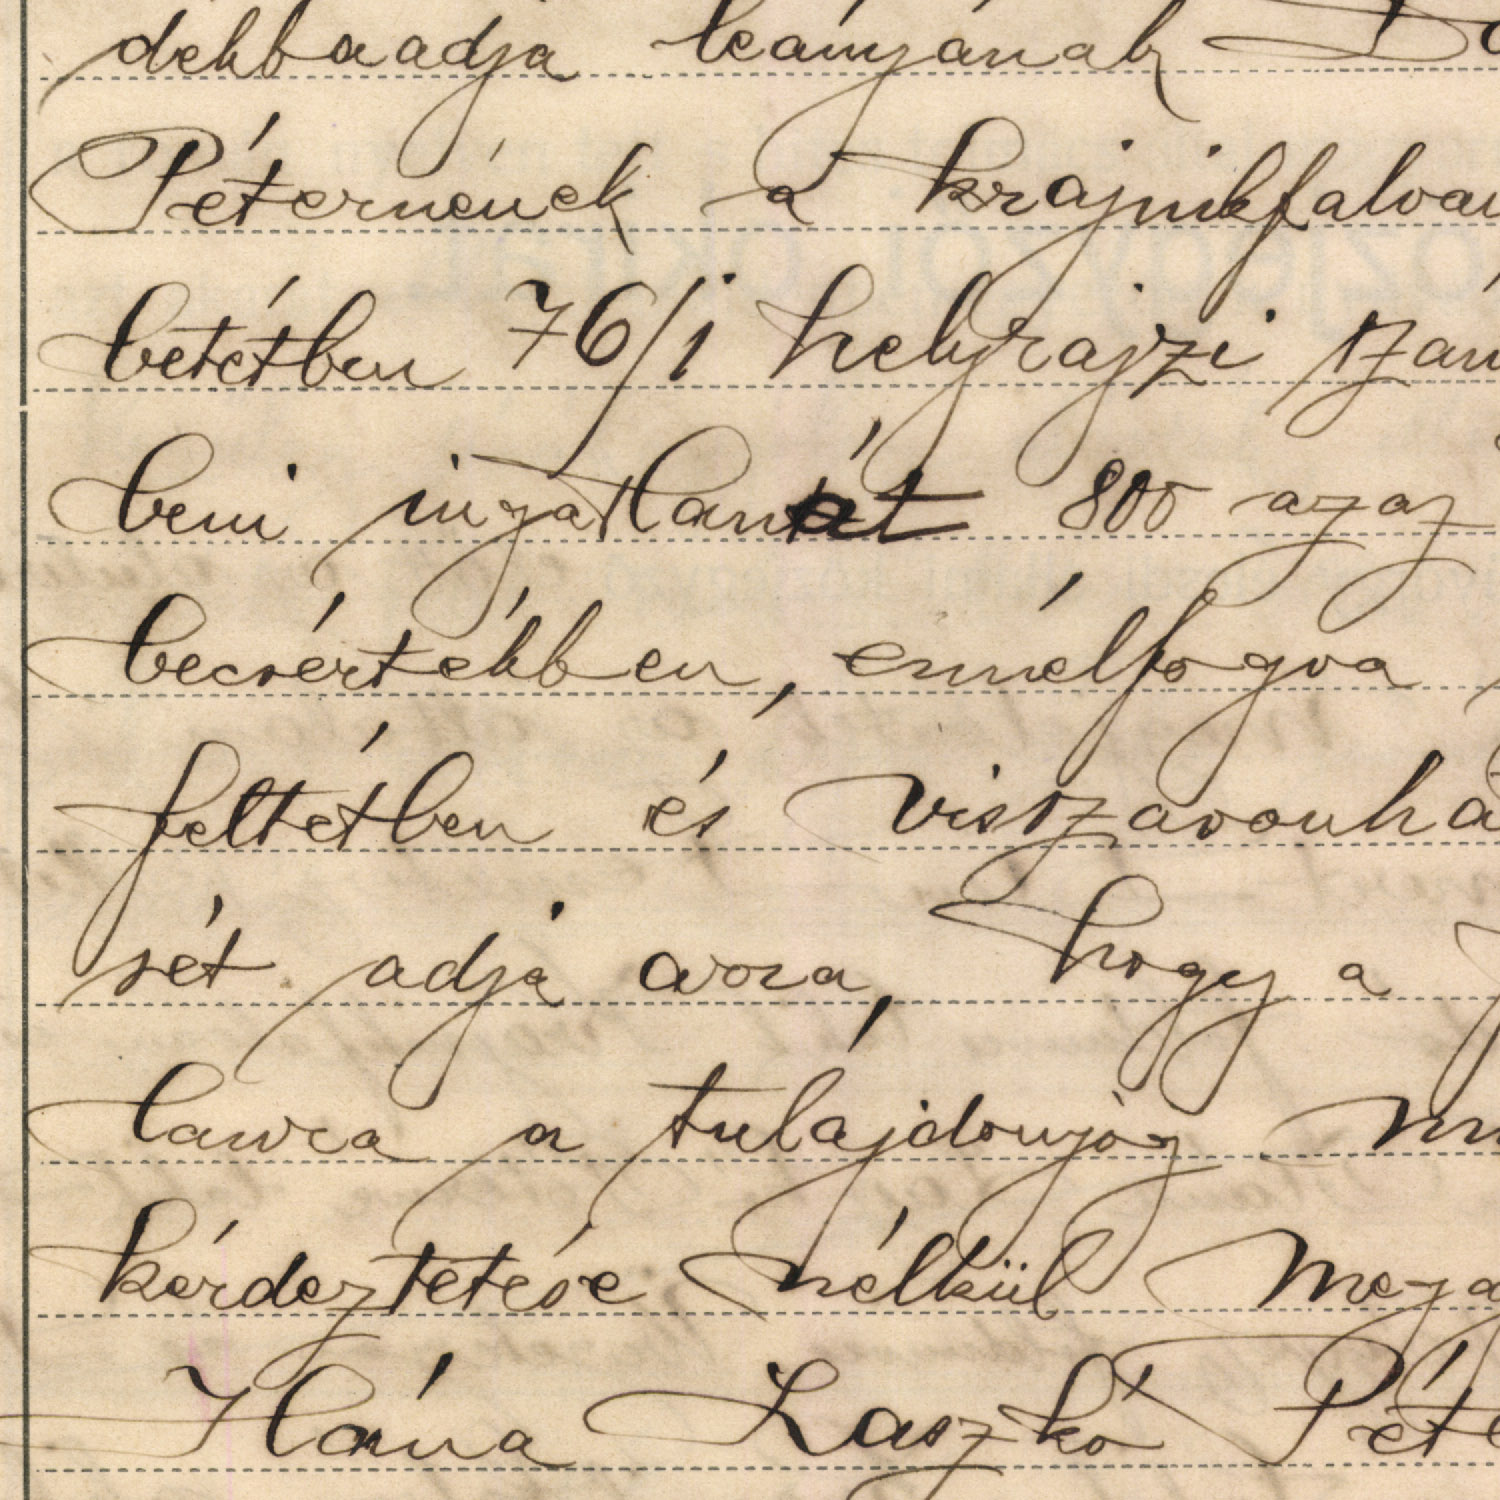 dékbaadja leányának
Péternének a krajnikfalvai
betétben 76/1 helyrajzi szám
beni ingatlanát 800 azaz
becsértékben, ennélfogva
feltétben és visszavonha
sét adja arra, hogy a
lanra a tulajdonjog
kérdeztetése nélkül mega
Ilána Laszkó Péte